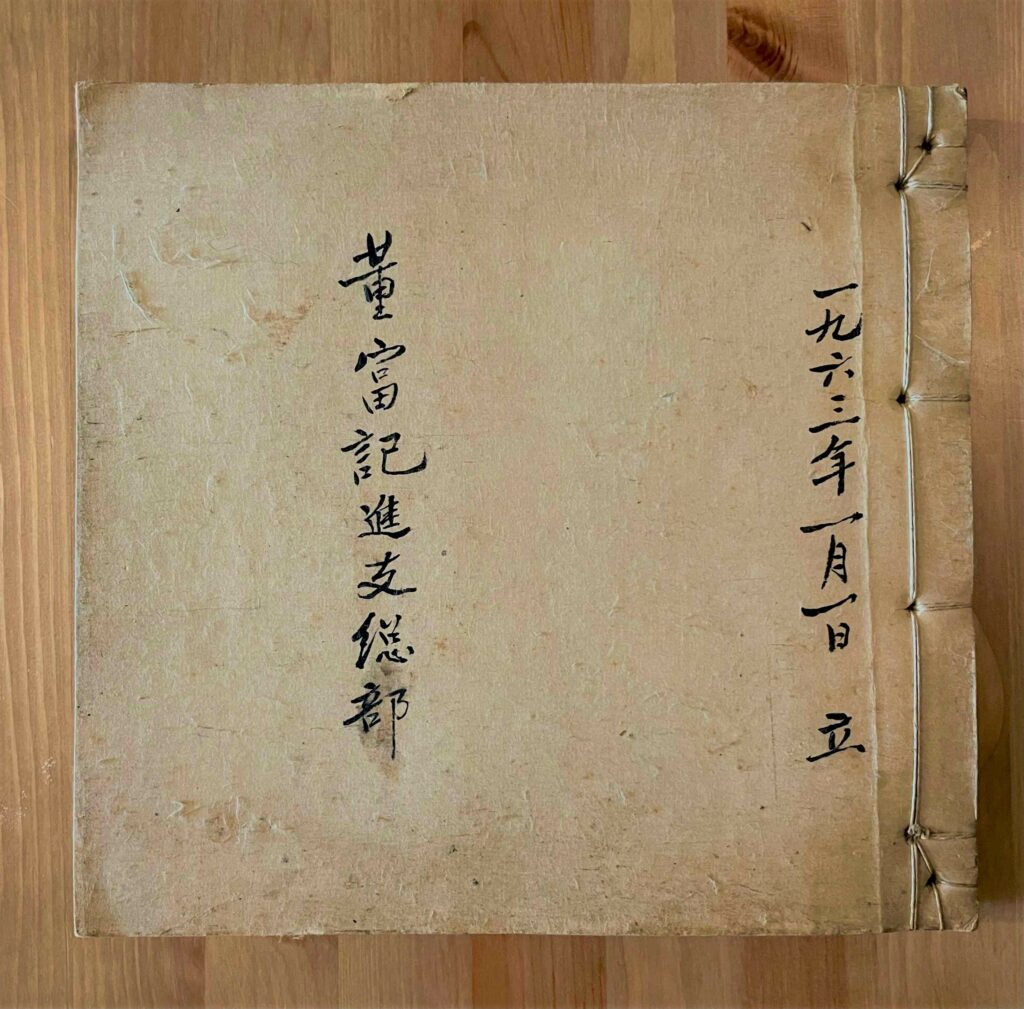 一九六三年一月一日 立
董富記進支総部